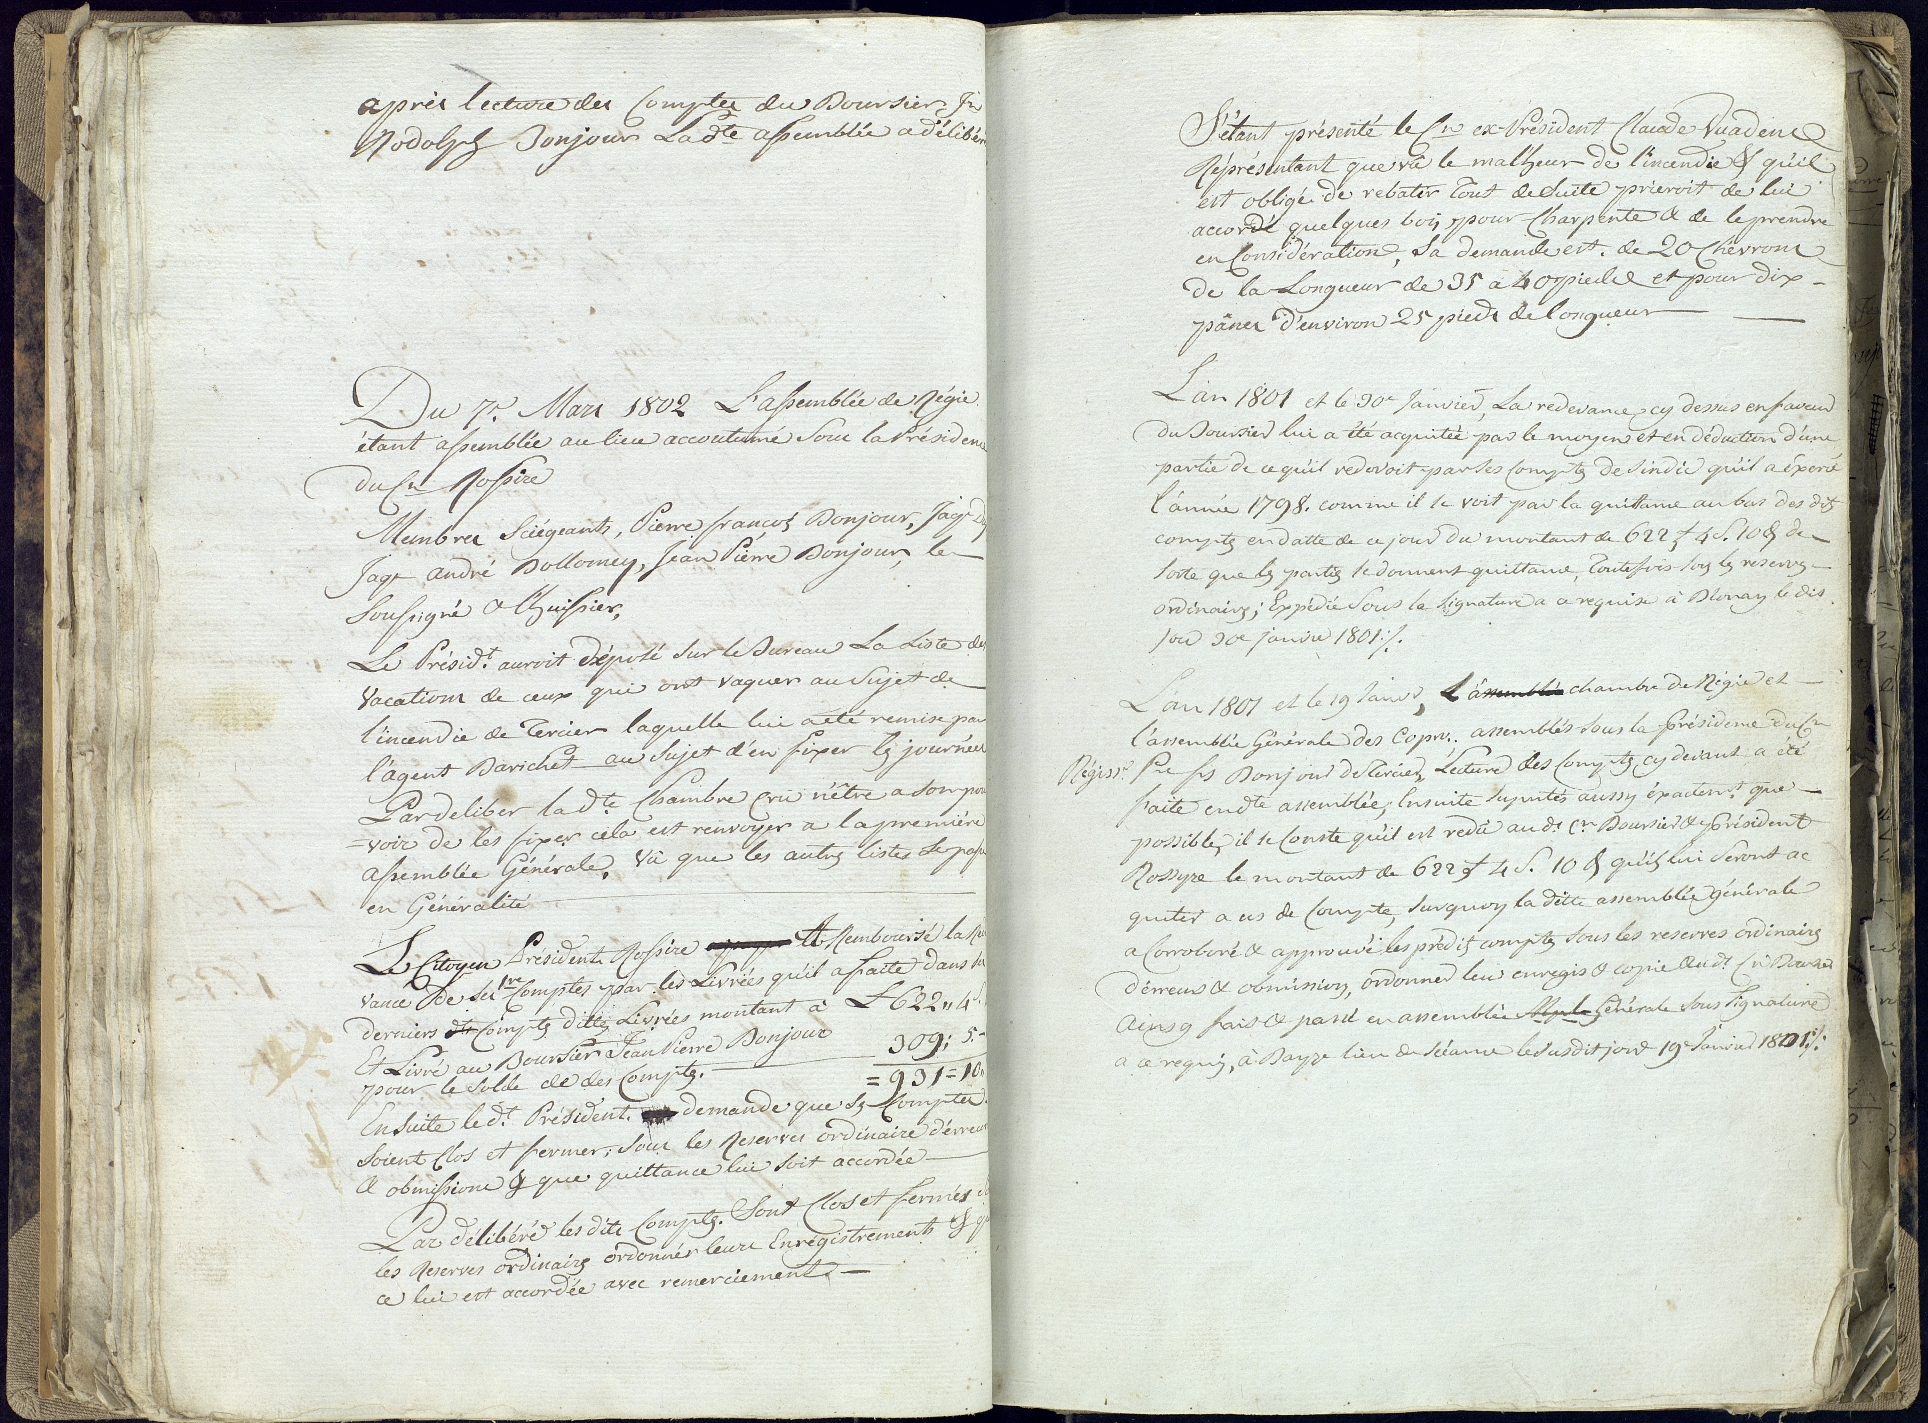 après lecture des Comptes du Boursier Jn
Rodolph Bonjour Lad.te assemblée a délibér
Du 7.e Mars 1802 L'assemblée de Régie
étant assemblée au lieu accoutumé Sous la Présidence
du Cn Rossire
Membres Siégeants, Pierre françois Bonjour, Jaq.
Jaq. andré Dollomey, Jean Pierre Bonjour, le
Soussigné & l'huissier,
Le Présid.t auroit déposé sur le Bureau La Liste des
Vacations de ceux qui ont vaquer au Sujet de
l'incendie de Tercier laquelle lui a été remise par
l'agent Barichet au Sujet d'en fixer les journées
Par deliber lad.te Chambre cru n'être a son pou
=voir de les fixer cela est renvoyer a la première
assemblée Générale, vû que les autres listes Se
en Généralité
Le Citoyen Président Rossire Remboursé la
vance de ses 1re Comptes par les Livrées qu'il a faite dans
derniers Comptes dittes Livrées montant à £ 622,, 4
Et Livré au Boursier Jean Pierre Bonjour
pour le Solde de des Comptes. 309; 5.
= 931 = 10
Ensuite le d.t Président demande que Ses Comptes
Soient Clos et fermer; Sous les Reserves ordinaire d'érreurs
& obmissions & que quittance lui soit accordée
Par délibéré les dits Comptes Sont Clos et fermés
les Reserves ordinaires ordonnér leurs Enrégistrements &
ce lui est accordée avec remerciement
S'étant présenté le Cn ex-Président Claude Vuadens
Représentant que vû le mal'heur de l'incendie & qu'il
est obligé de rebatir Tout de Suite prieroit de lui
accordé quelques bois pour Charpente & de le prendre
en Considération, Sa demande est de 20 Chevrons
de la Longueur de 35 à 40 pieds et pour dix
pânes d'environ 25 pieds de longueur
L'an 1801 et le 30e Janvier, La redevance cy dessus en faveur
du Boursier lui a été acquitée par le moyen et en déduction d'une
partie de ce qu'il redevoit par ses Comptes de Sindic qu'il a éxercé
l'année 1798. comme il se voit par la quittance au bas des dits
comptes en datte de ce jour du montant de 622 £ 4 S. 10 & de
sorte que les parties se donnent quittance, Toutefois sous les reserves
ordinaires; Expédié sous la signature a ce requise à Blonay le dis
jour 30e janvier 1801:/.
L'an 1801 et le 19 Janvr, L'assemblée chambre de Régie et
l'assemblée Générale des Copro.. assemblés sous la présidence du Cn
Régiss.r Pre fs Bonjour de Tercier, Lecture des Comptes cy devant a été
faite en dte assemblée; Ensuite suputés aussy éxactemt que
possible, il se Conste qu'il est redû au d.t Cn Boursier & président
Rossyre le montant de 622 £ 4 S. 10 & qu'ils lui Seront ac
quiter a de Compte, Surquoy la ditte assemblée générale
a Corroboré & approuvé les prédits comptes Sous les reserves ordinaires
d'érreurs & obmissions, ordonner leur enregis & copie au d.t Cn Boursier
Ainsy fait & passé en assemblée Générale sous signature
a ce requis, à Bayse lieu de Séance le susdit jour 19e Janvier 1801:/: